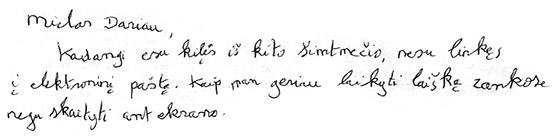 Mielas Dariau,
Kadangi esu kilęs iš kito šimtmečio, nesu linkęs
į elektroninį paštą. Kaip man geriau laikyti laišką rankose
negu skaityti ant ekrano.